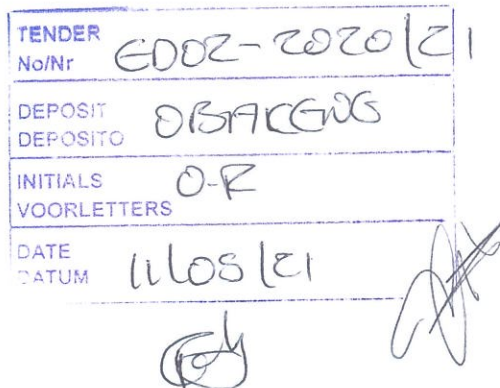 TENDER
No/Nr ED02-2020/21
DEPOSIT
DEPOSITO OBAKENG
INITIALS
VOORLETTERS O-R
DATE
DATUM 11/05/21